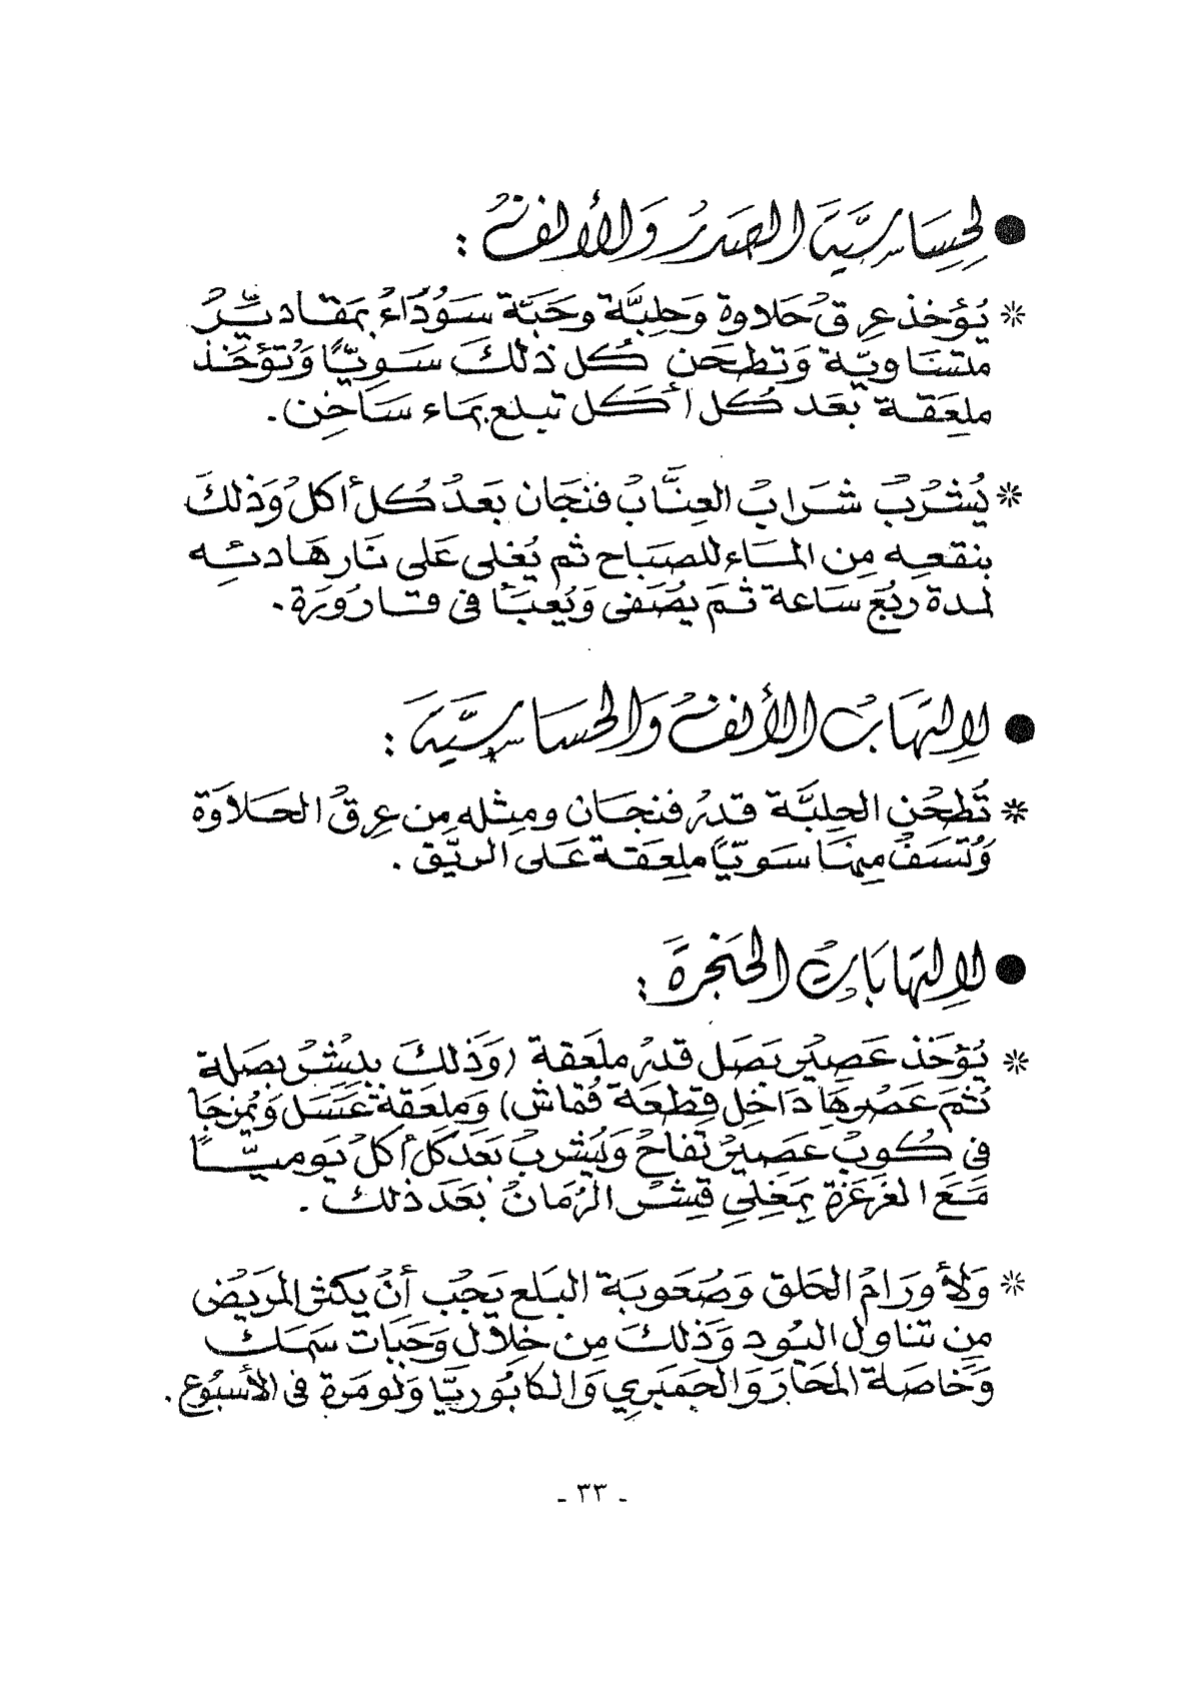 ● لِحِسَاسِيَّة الصَدرُ وَالأنفُ :
* يُؤخذ عِرقُ حَلاوة وَحَلِبَّة وحَبَّة سَوُدَاءُ بمَقاديِّرُ
متسَاويّة وَتطحَن كُل ذلكَ سَويًّا وَتُؤخَذ
ملعَقة بَعَد كُل أكَل تبلع بمَاء سَاخِن .
* يُشرُبُ شرَابُ العِنَّابُ فنجَان بَعَدُ كُل أكلُ وَذلكَ
بنقعِه مِن المسَاء للصبَاح ثم يُغلى عَلى نَار هَادئِه
لمدة ربُعَ سَاعة ثمَ يصُفَى وَيُعبَأ فى قارُورَة .
● لاِلتِهَابُ الأنفُ وَالحسَاسِيَّة :
* تُطحُن الحِلبَّة قدرُ فنجَان ومِثله مِن عِرقُ الحَلاَوَة
وَتُسَفُ مِنهَا سَويًّا ملعَقة عَلى الريّق .
● لاِلتِهَابَاتُ الحَنجرَة :
* يُؤخَذ عَصِيرُ بَصَل قدرُ ملعَقة (وَذلكَ ببُشرُ بصَلة
ثمَ عَصُرهَا دَاخِل قِطعَة قُماش) وَملعَقة عَسَل وَيُمزجَا
فى كُوبُ عَصِيرُ تفاحُ وَيُشربُ بَعَد كل أكلُ يَوميًّا
مَعَ الغَرغَرة بِمَغلِي قِشرُ الرُمانُ بَعَدَ ذلك .
* وَلأورَامُ الحَلق وَصُعَوبَة البَلع يَجُب أنُ يكثر المرَيضُ
مِن تناول اليُود وَذلكَ مِن خِلال وَجَبَات سَمَك
وَخَاصَة المحَار وَالجَمَبَرِي وَالكابُوريَّا وَلو مَرة فى الأسبُوع .
- ٣٣ -